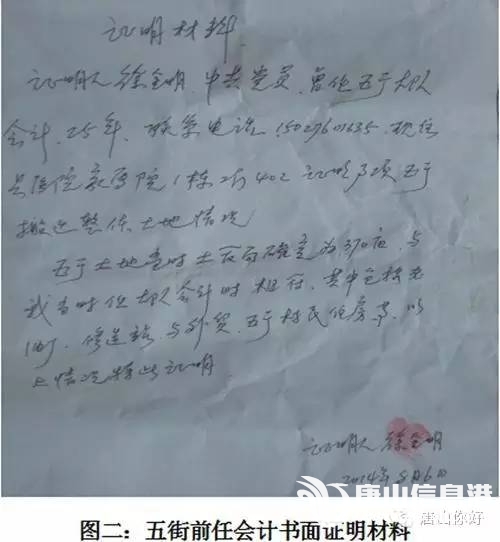 证明材料
证明人徐全明,中共党员,曾任五于大队
会计25年,联系电话15027601635,现住
县医院家属院1栋2门402证明多项五于
搬迁整体土地情况
五于土地当时土改面确定为370亩,与
我当时任大队会计时相符,其中包括
修造站,与外贸,五于村民住房等,以
上情况特此证明
证明人徐全明
2014年8月6日
唐山信息港
唐山你好
图二:五街前任会计书面证明材料